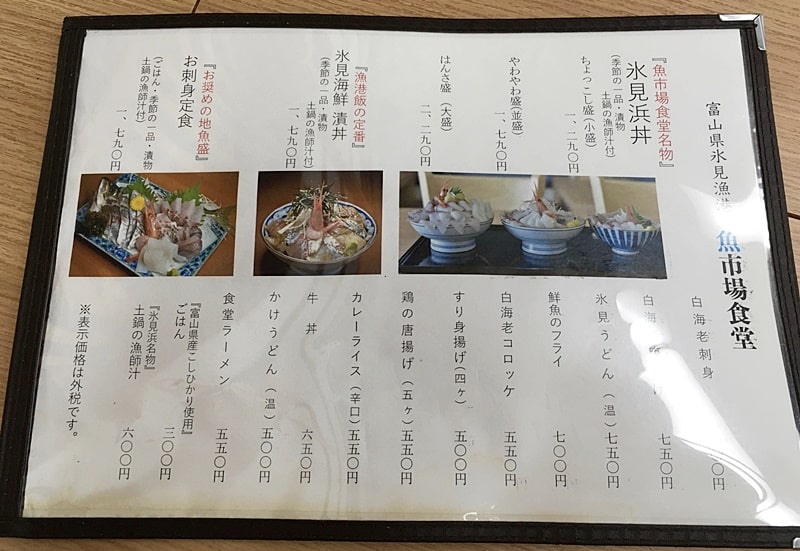 富山県氷見漁港 魚市場食堂
『魚市場食堂名物』
氷見浜丼
(季節の一品・漬物
土鍋の漁師汁付)
ちょっこし盛(小盛)
一、二九〇円
やわやわ盛(並盛)
一、七九〇円
はんさ盛 (大盛)
二、二九〇円
『漁港飯の定番』
氷見海鮮 漬丼
(季節の一品・漬物
土鍋の漁師汁付)
一、七九〇円
『お奨めの地魚盛』
お刺身定食
(ごはん・季節の一品・漬物
土鍋の漁師汁付)
一、七九〇円
白海老刺身
〇円
白海
七五〇円
氷見うどん(温) 七五〇円
鮮魚のフライ 七〇〇円
白海老コロッケ 五五〇円
すり身揚げ(四ヶ) 五〇〇円
鶏の唐揚げ(五ヶ) 五五〇円
カレーライス(辛口) 五五〇円
牛丼 六五〇円
かけうどん(温) 五〇〇円
食堂ラーメン 五五〇円
『富山県産こしひかり使用』
ごはん 三〇〇円
『氷見浜名物』
土鍋の漁師汁 六〇〇円
※表示価格は外税です。